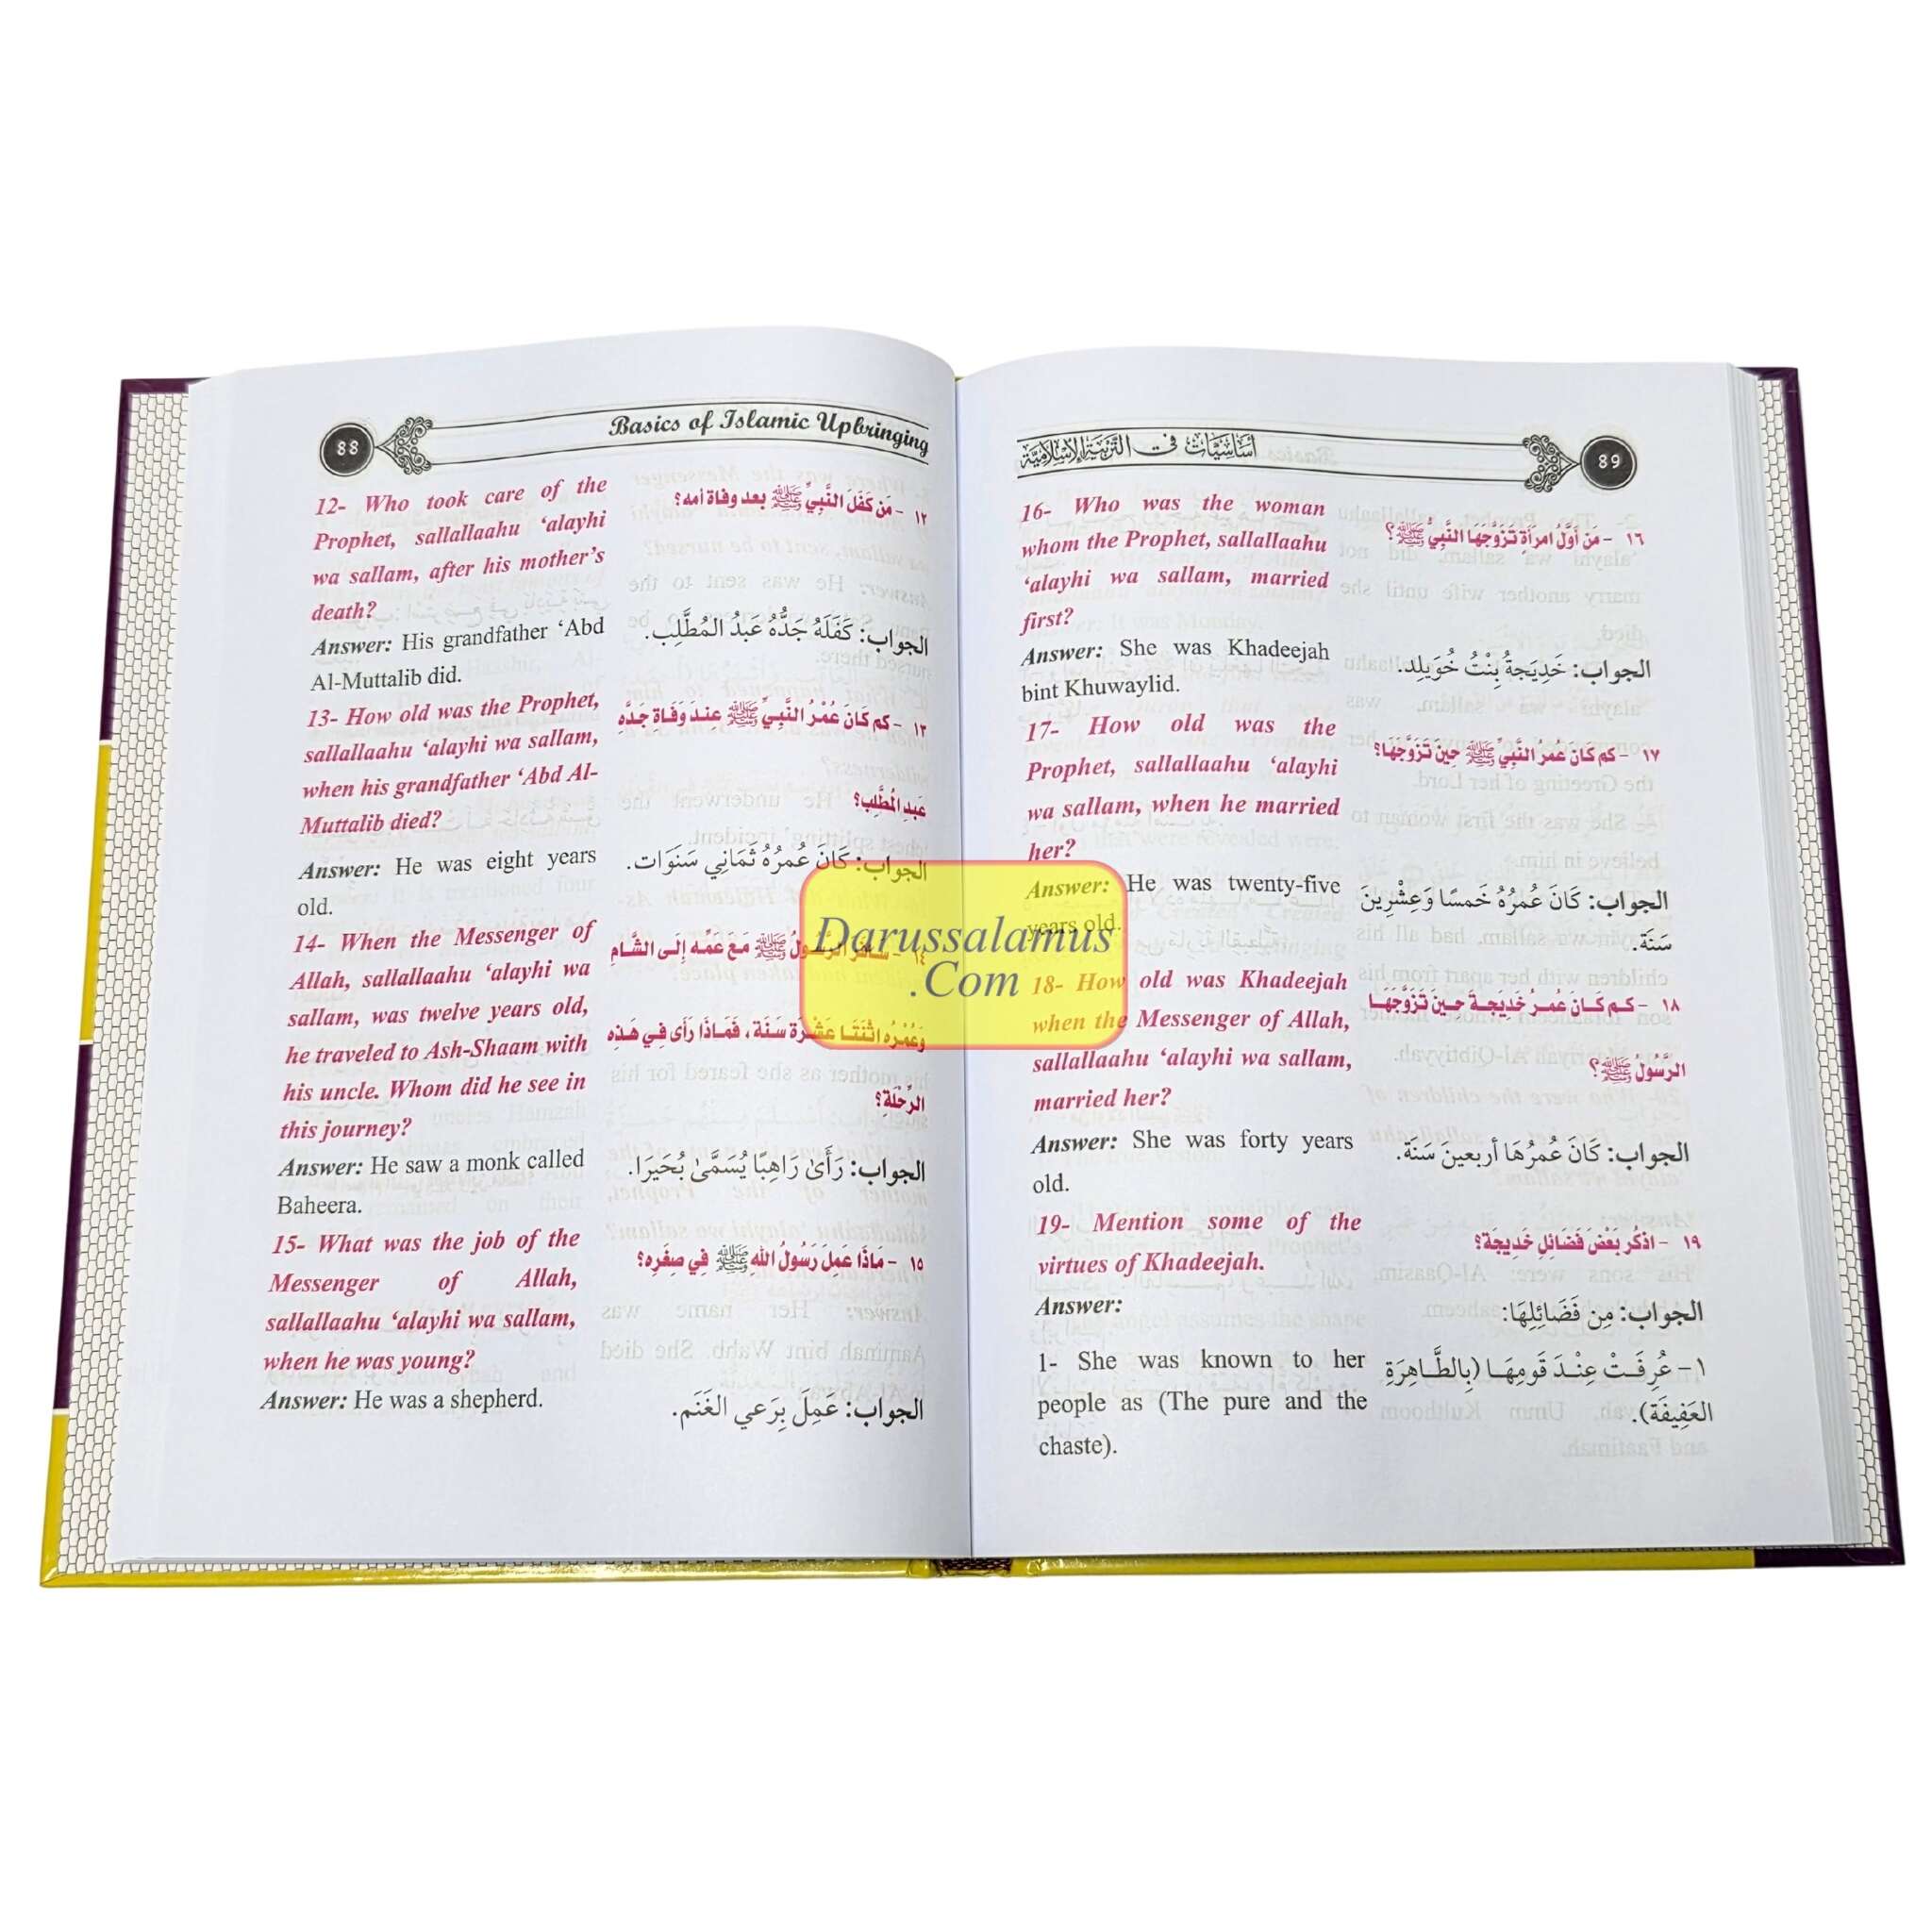 88
Basics of Islamic Upbringing
12- Who took care of the
Prophet, sallallaahu ‘alayhi
wa sallam, after his mother’s
death?
Answer: His grandfather ‘Abd
Al-Muttalib did.
13- How old was the Prophet,
sallallaahu ‘alayhi wa sallam,
when his grandfather ‘Abd Al-
Muttalib died?
Answer: He was eight years
old.
14- When the Messenger of
Allah, sallallaahu ‘alayhi wa
sallam, was twelve years old,
he traveled to Ash-Shaam with
his uncle. Whom did he see in
this journey?
Answer: He saw a monk called
Baheera.
15- What was the job of the
Messenger of Allah,
sallallaahu ‘alayhi wa sallam,
when he was young?
Answer: He was a shepherd.
١٢ - مَن كَفَلَ النَّبِيَّ ﷺ بعد وفاة أمه؟
الجواب: كَفَلَهُ جَدُّهُ عَبدُ المُطَّلِب.
١٣ - كم كَانَ عُمْرُ النَّبِيِّ ﷺ عِندَ وَفَاةِ جَدِّهِ
عَبدِ المُطَّلِب؟
الجواب: كَانَ عُمرُهُ ثَمَانِي سَنَوَات.
١٤ - سَافَرَ الرَّسُولُ ﷺ مَعَ عَمِّه إِلَى الشَّامِ
وَعُمْرُه اثْنَتَا عَشْرَة سَنَة، فَمَاذَا رَأَى فِي هَذِهِ
الرِّحْلَةِ؟
الجواب: رَأَىٰ رَاهِبًا يُسَمَّىٰ بُحَيرَا.
١٥ - مَاذَا عَمِلَ رَسُولُ اللهِ ﷺ فِي صِغَرِه؟
الجواب: عَمِلَ بِرَعي الغَنَم.
أساسيات في التربية الإسلامية
89
16- Who was the woman
whom the Prophet, sallallaahu
‘alayhi wa sallam, married
first?
Answer: She was Khadeejah
bint Khuwaylid.
17- How old was the
Prophet, sallallaahu ‘alayhi
wa sallam, when he married
her?
Answer: He was twenty-five
years old.
18- How old was Khadeejah
when the Messenger of Allah,
sallallaahu ‘alayhi wa sallam,
married her?
Answer: She was forty years
old.
19- Mention some of the
virtues of Khadeejah.
Answer:
1- She was known to her
people as (The pure and the
chaste).
١٦ - مَن أوَّلُ امرَأَةٍ تَزَوَّجَهَا النَّبِيُّ ﷺ؟
الجواب: خَدِيَجةُ بِنْتُ خُوَيلِد.
١٧ - كم كَانَ عُمرُ النَّبِيِّ ﷺ حِينَ تَزَوَّجَهَا؟
الجواب: كَانَ عُمرُهُ خَمسًا وَعِشْرِينَ
سَنَة.
١٨ - كم كَانَ عُمرُ خَدِيجةَ حِينَ تَزَوَّجَهَا
الرَّسُولُ ﷺ؟
الجواب: كَانَ عُمرُهَا أربعينَ سَنَة.
١٩ - اذكُر بَعْضَ فَضَائلِ خَدِيجَة؟
الجواب: مِن فَضَائِلِهَا:
١- عُرِفَتْ عِنْدَ قَومِهَا (بِالطَّاهِرَةِ
العَفِيفَة).
Darussalamus
.Com